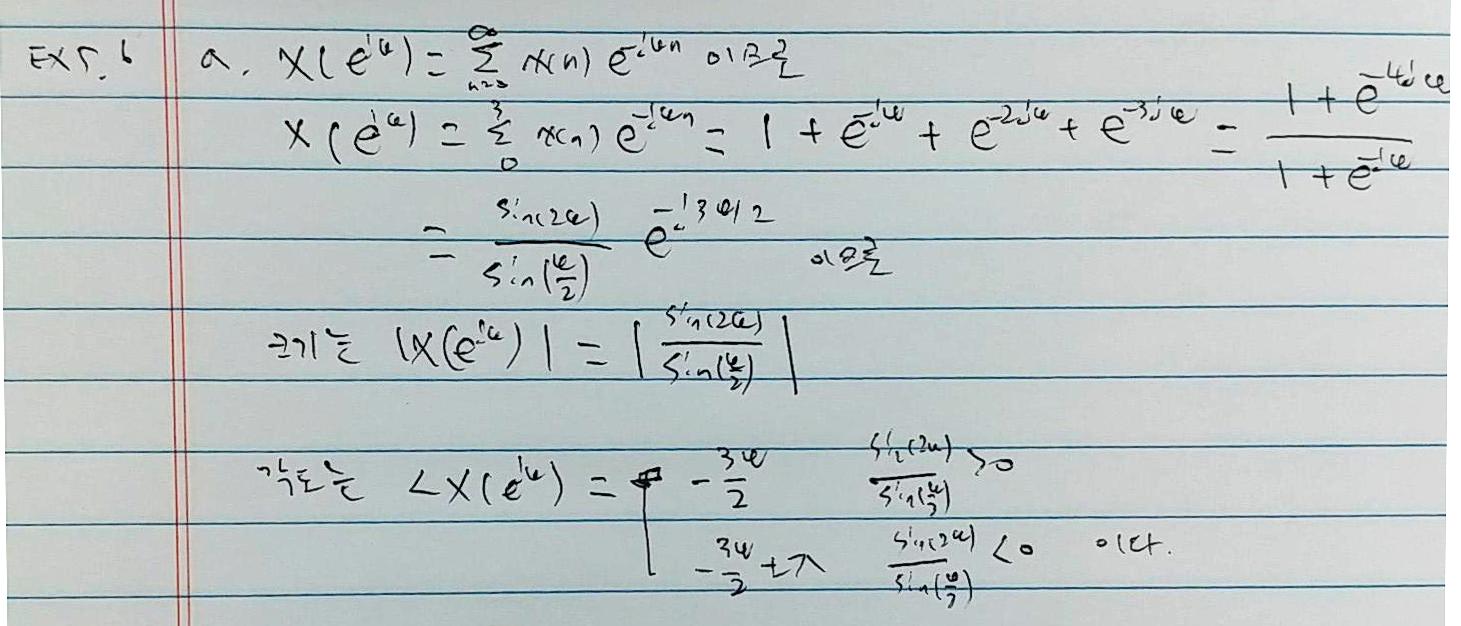 EX5.6 a. X(e^{jω}) = \sum_{n=0}^{∞} x(n) e^{-jωn} 이므로
X(e^{jω}) = \sum_{0}^{3} x(n) e^{-jωn} = 1 + e^{-jω} + e^{-2jω} + e^{-3jω} = \frac{1 + e^{-4jω}}{1 + e^{-jω}}
= \frac{sin(2ω)}{sin(\frac{ω}{2})} e^{-j3ω/2} 이므로
크기는 |X(e^{jω})| = |\frac{sin(2ω)}{sin(\frac{ω}{2})}|
각도는 ∠X(e^{jω}) = [ -\frac{3ω}{2} \frac{sin(2ω)}{sin(\frac{ω}{2})} > 0
-\frac{3ω}{2} ± π \frac{sin(2ω)}{sin(\frac{ω}{2})} < 0 이다.